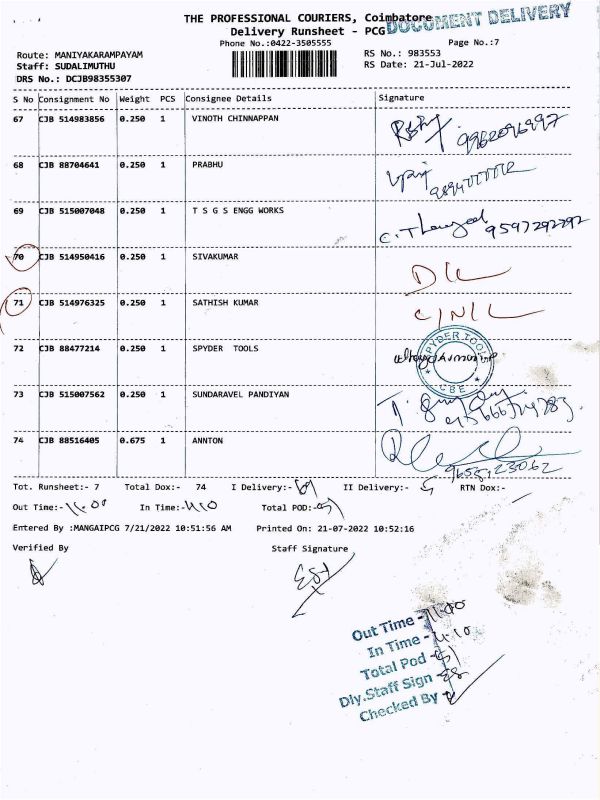 THE PROFESSIONAL COURIERS, Coimbatore
DOCUMENT DELIVERY
Delivery Runsheet - PCG
Phone No.:0422-3505555
Page No.:7
Route: MANIYAKARAMPAYAM
RS No.: 983553
Staff: SUDALIMUTHU
RS Date: 21-Jul-2022
DRS No.: DCJB98355307
S No Consignment No Weight PCS Consignee Details Signature
67 CJB 514983856 0.250 1 VINOTH CHINNAPPAN
68 CJB 88704641 0.250 1 PRABHU
69 CJB 515007048 0.250 1 T S G S ENGG WORKS 9597292292
70 CJB 514950416 0.250 1 SIVAKUMAR D/L
71 CJB 514976325 0.250 1 SATHISH KUMAR C/N/L
72 CJB 88477214 0.250 1 SPYDER TOOLS SPYDER TOOLS CBE
73 CJB 515007562 0.250 1 SUNDARAVEL PANDIYAN
74 CJB 88516405 0.675 1 ANNTON
Tot. Runsheet:- 7 Total Dox:- 74 I Delivery:- II Delivery:- 5 RTN Dox:-
Out Time:- 11.00 In Time:- 4.10 Total POD:-
Entered By :MANGAIPCG 7/21/2022 10:51:56 AM Printed On: 21-07-2022 10:52:16
Verified By Staff Signature
Out Time - 11.00
In Time - 4.10
Total Pod -
Dly.Staff Sign
Checked By